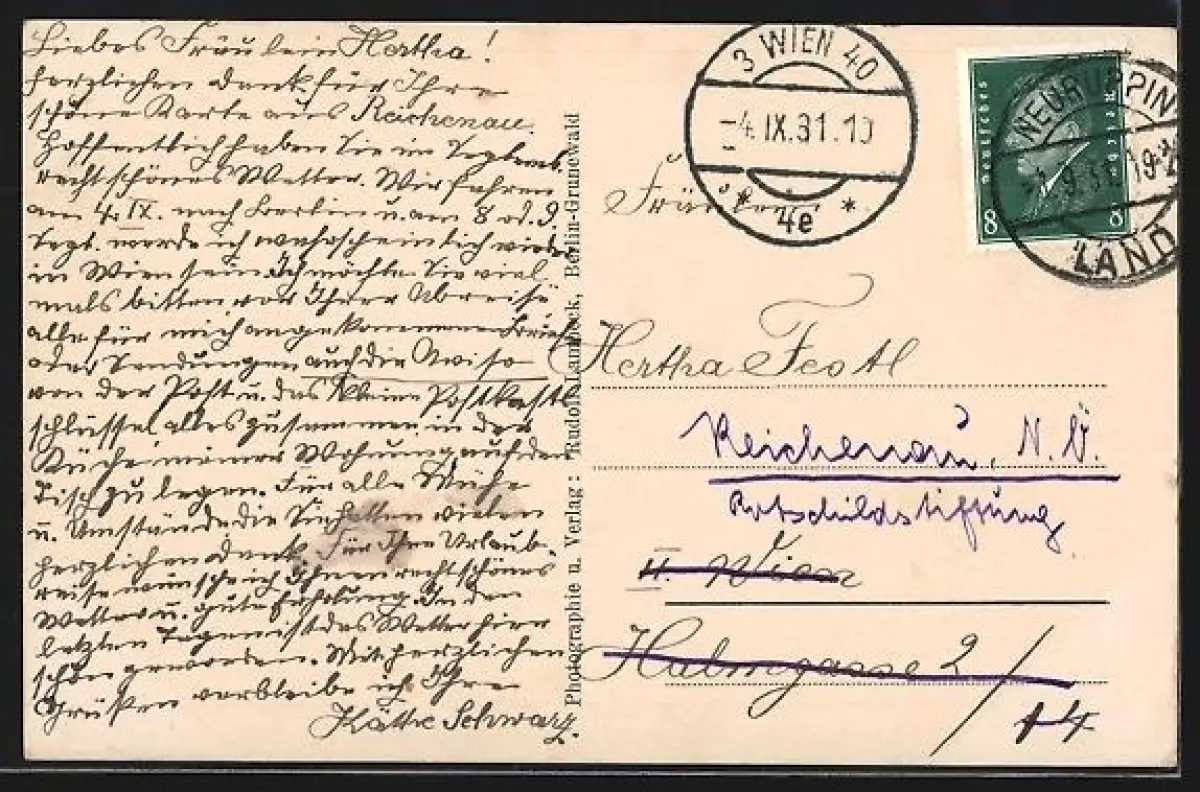 Liebes Fräulein Hertha!
Herzlichen Dank für Ihre
schöne Karte aus Reichenau.
Hoffentlich haben Sie im Septemb.
recht schönes Wetter. Wir fahren
am 4. IX. nach Berlin u. am 8 od. 9.
Sept. werde ich wahrscheinlich wieder
in Wien sein. Ich möchte Sie viel-
mals bitten vor Ihrer Abreise
alle für mich angekommenen Briefe
oder Sendungen auch die Aviso
von der Post u. das kleine Postkastl
schlüssel alles zusammen in der
Küche meiner Wohnung auf den
Tisch zu legen. Für alle Mühe
u. Umstände die Sie hatten vielen
herzlichen Dank. Für Ihre Urlaub-
reise wünsche ich Ihnen recht schönes
Wetter u. gute Erholung. In den
letzten Tagen ist das Wetter hier
schön geworden. Mit herzlichen
Grüßen verbleibe ich Ihre
Käthe Schwarz.
Photographie u. Verlag: Rudolf Lambeck, Berlin-Grunewald
3 WIEN 40
-4.IX.31.10
* 4e *
Deutsches Reich
8 8
NEURUPPIN
LAND
Fräulein
Hertha Festl
Reichenau, N.Ö.
Rotschildstiftung
II. Wien
Halmgasse 2/
14